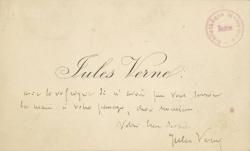 Jules Verne.
avec le regret de n'avoir pu vous serrer
la main à votre passage, cher monsieur
Votre bien dévoué
Jules Verne